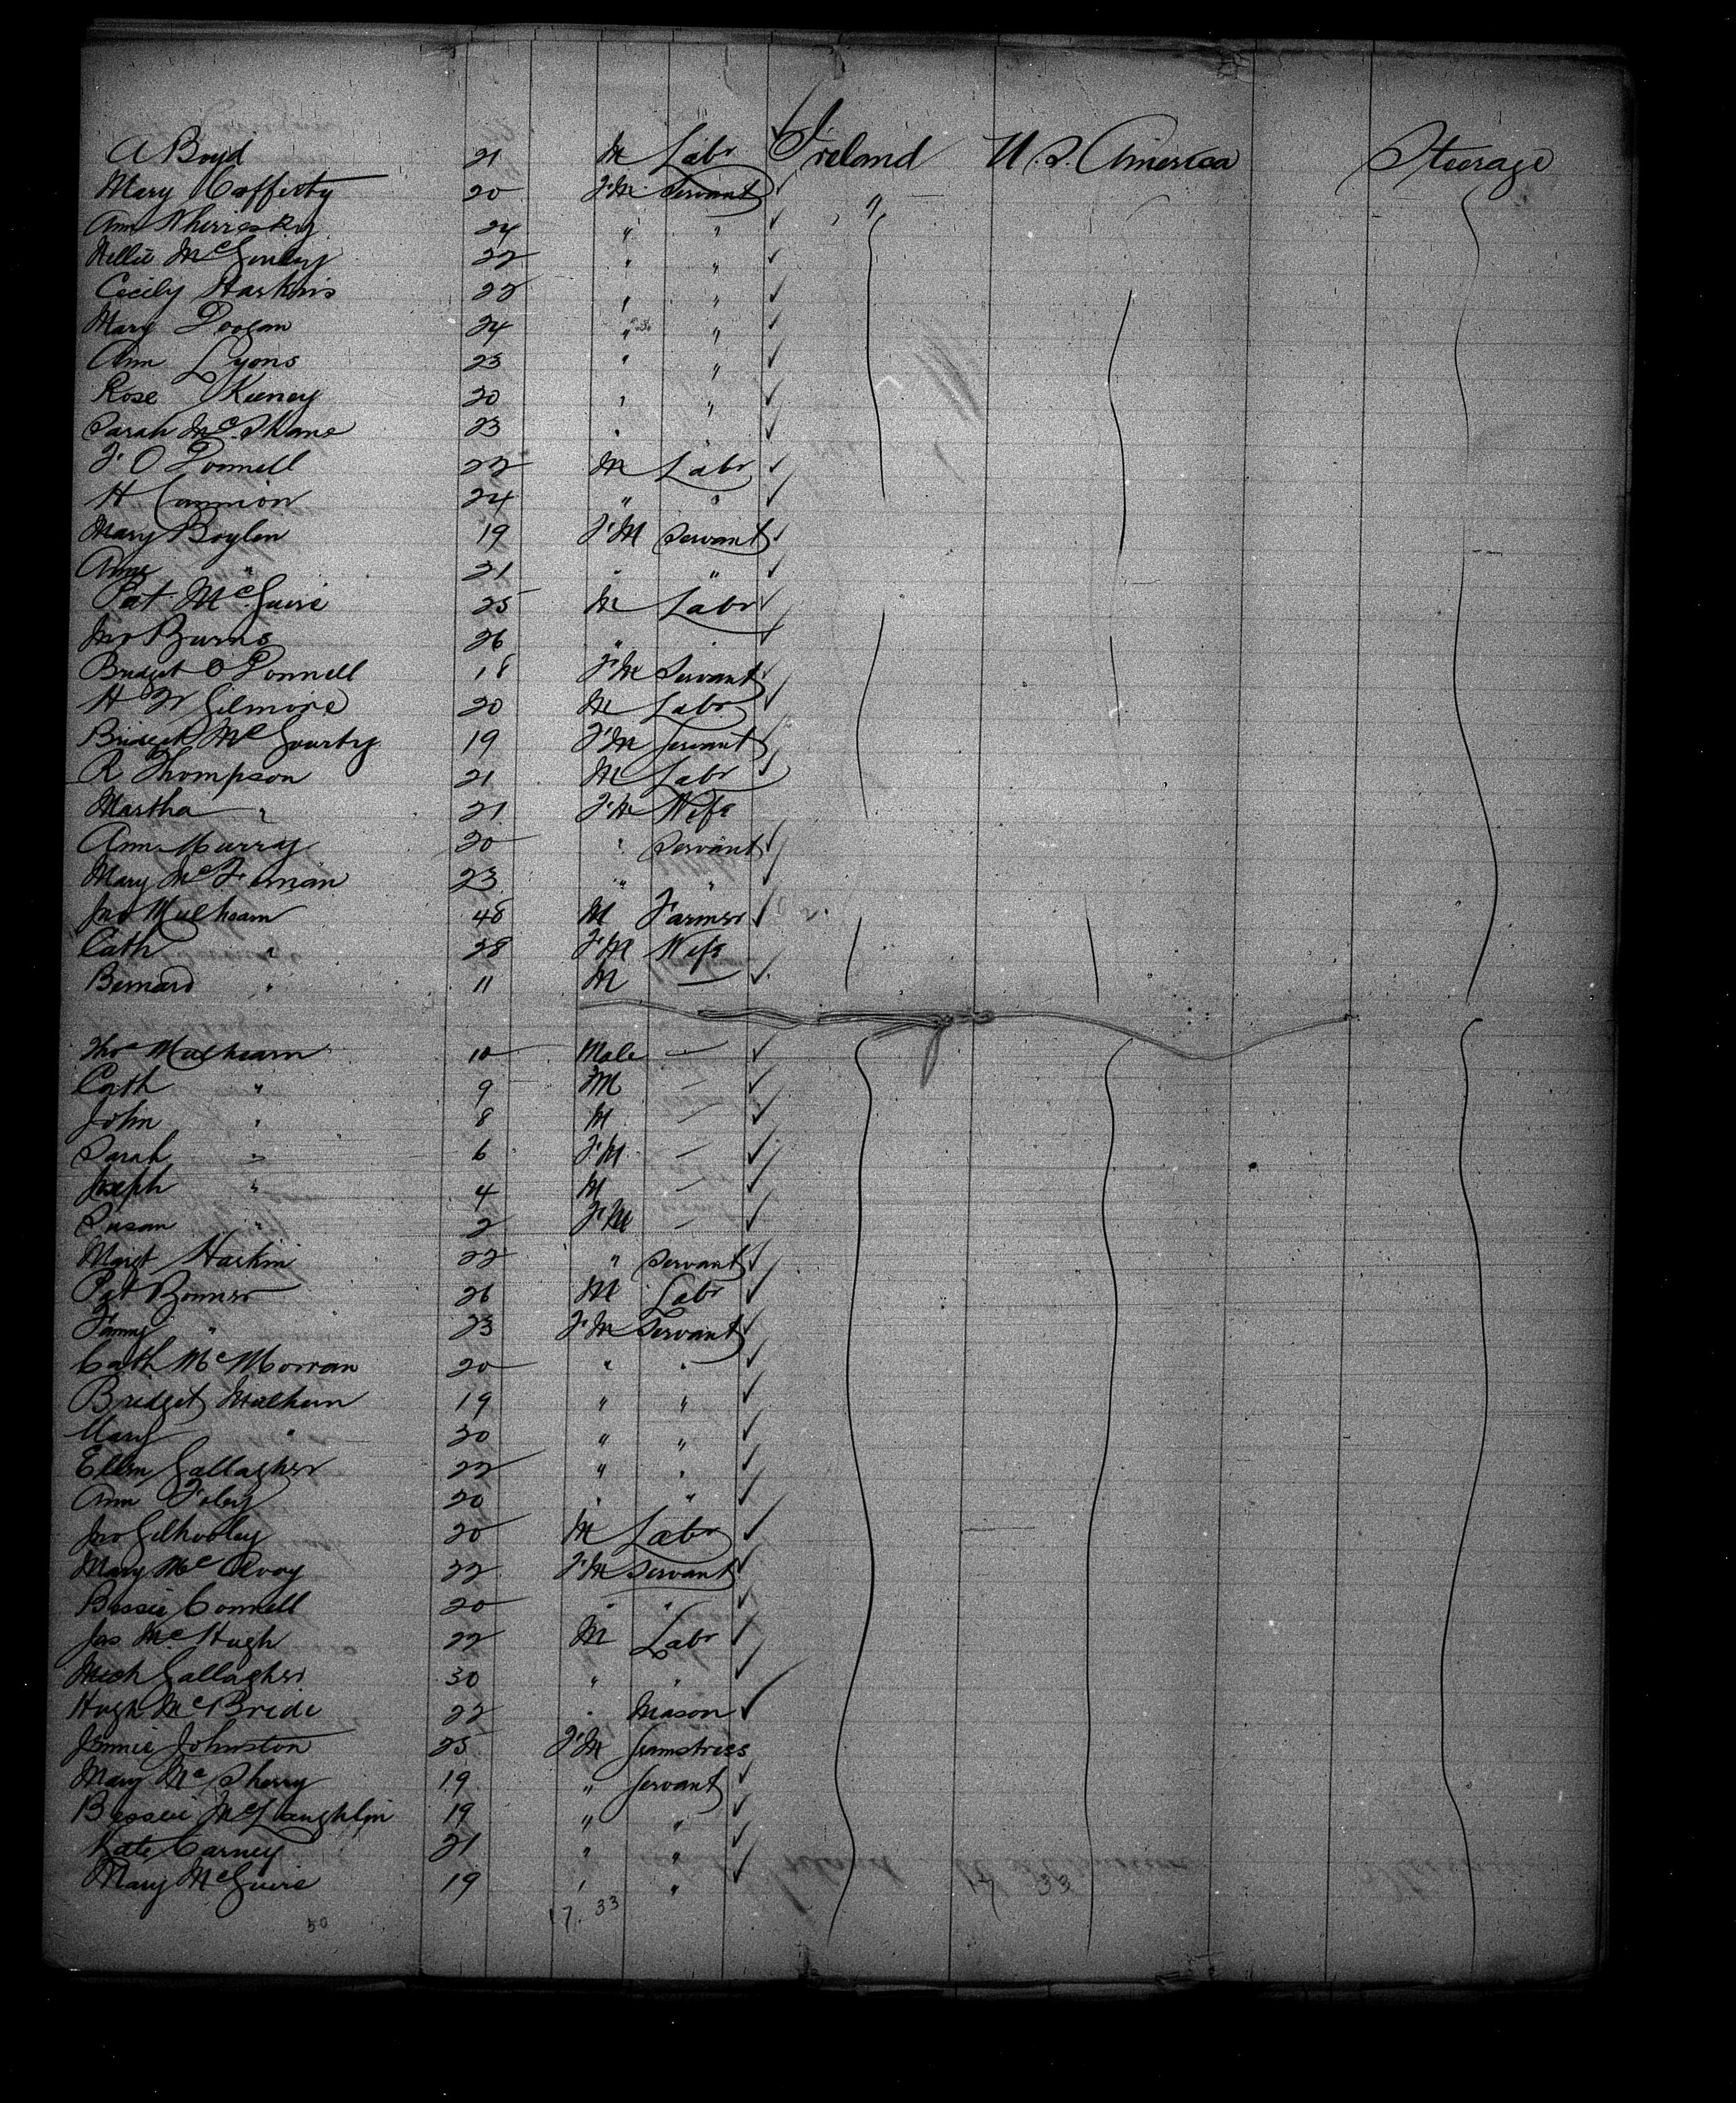 A Boyd 21 M Labr Ireland U.S. America Steerage
Mary Cafferty 20 F'M Servant "
Ann 24 " "
Nellie McGinley 22 " "
Cecily Harkins 22 " "
Mary Doogan 24 " "
Ann Lyons 23 " "
Rose Keeney 20 " "
Sarah McShane 23 " "
F O'Donnell 22 M Labr
H Cannion 24 " "
Mary Boylen 19 F'M Servant
Anne " 21 " "
Pat McGuire 25 M Labr
Jno Burns 26 " "
Bridget O'Donnell 18 F'M Servant
H W Gilmore 20 M Labr
Bridget McGourty 19 F'M Servant
R Thompson 21 M Labr
Martha " 21 F'M Wife
Ann Murray 20 " Servant
Mary 23 " "
Jno Mulhearn 48 M Farmer
Cath " 28 F'M Wife
Bernard " 11 M —
Thos Mulhearn 10 Male —
Cath " 9 F'M —
John " 8 M —
Sarah " 6 F'M —
Joseph " 4 M —
Susan " 2 F'M —
Margt Harkin 22 " Servant
Pat Bonner 26 M Labr
Fanny " 23 F'M Servant
Cath McMorran 20 " "
Bridget Mulhern 19 " "
Mary " 20 " "
Ellen Gallagher 22 " "
Ann Foley 20 " "
Jno Gilhooley 20 M Labr
Mary McEvoy 22 F'M Servant
Bessie Connell 20 " "
Jas McHugh 22 M Labr
Mich Gallagher 30 " "
Hugh McBride 22 " Mason
Jennie Johnston 25 F'M Seamstress
Mary McSherry 19 " Servant
Bessie McLaughlin 19 " "
Kate Carney 21 " "
Mary McGuire 19 " "
50 17. 33